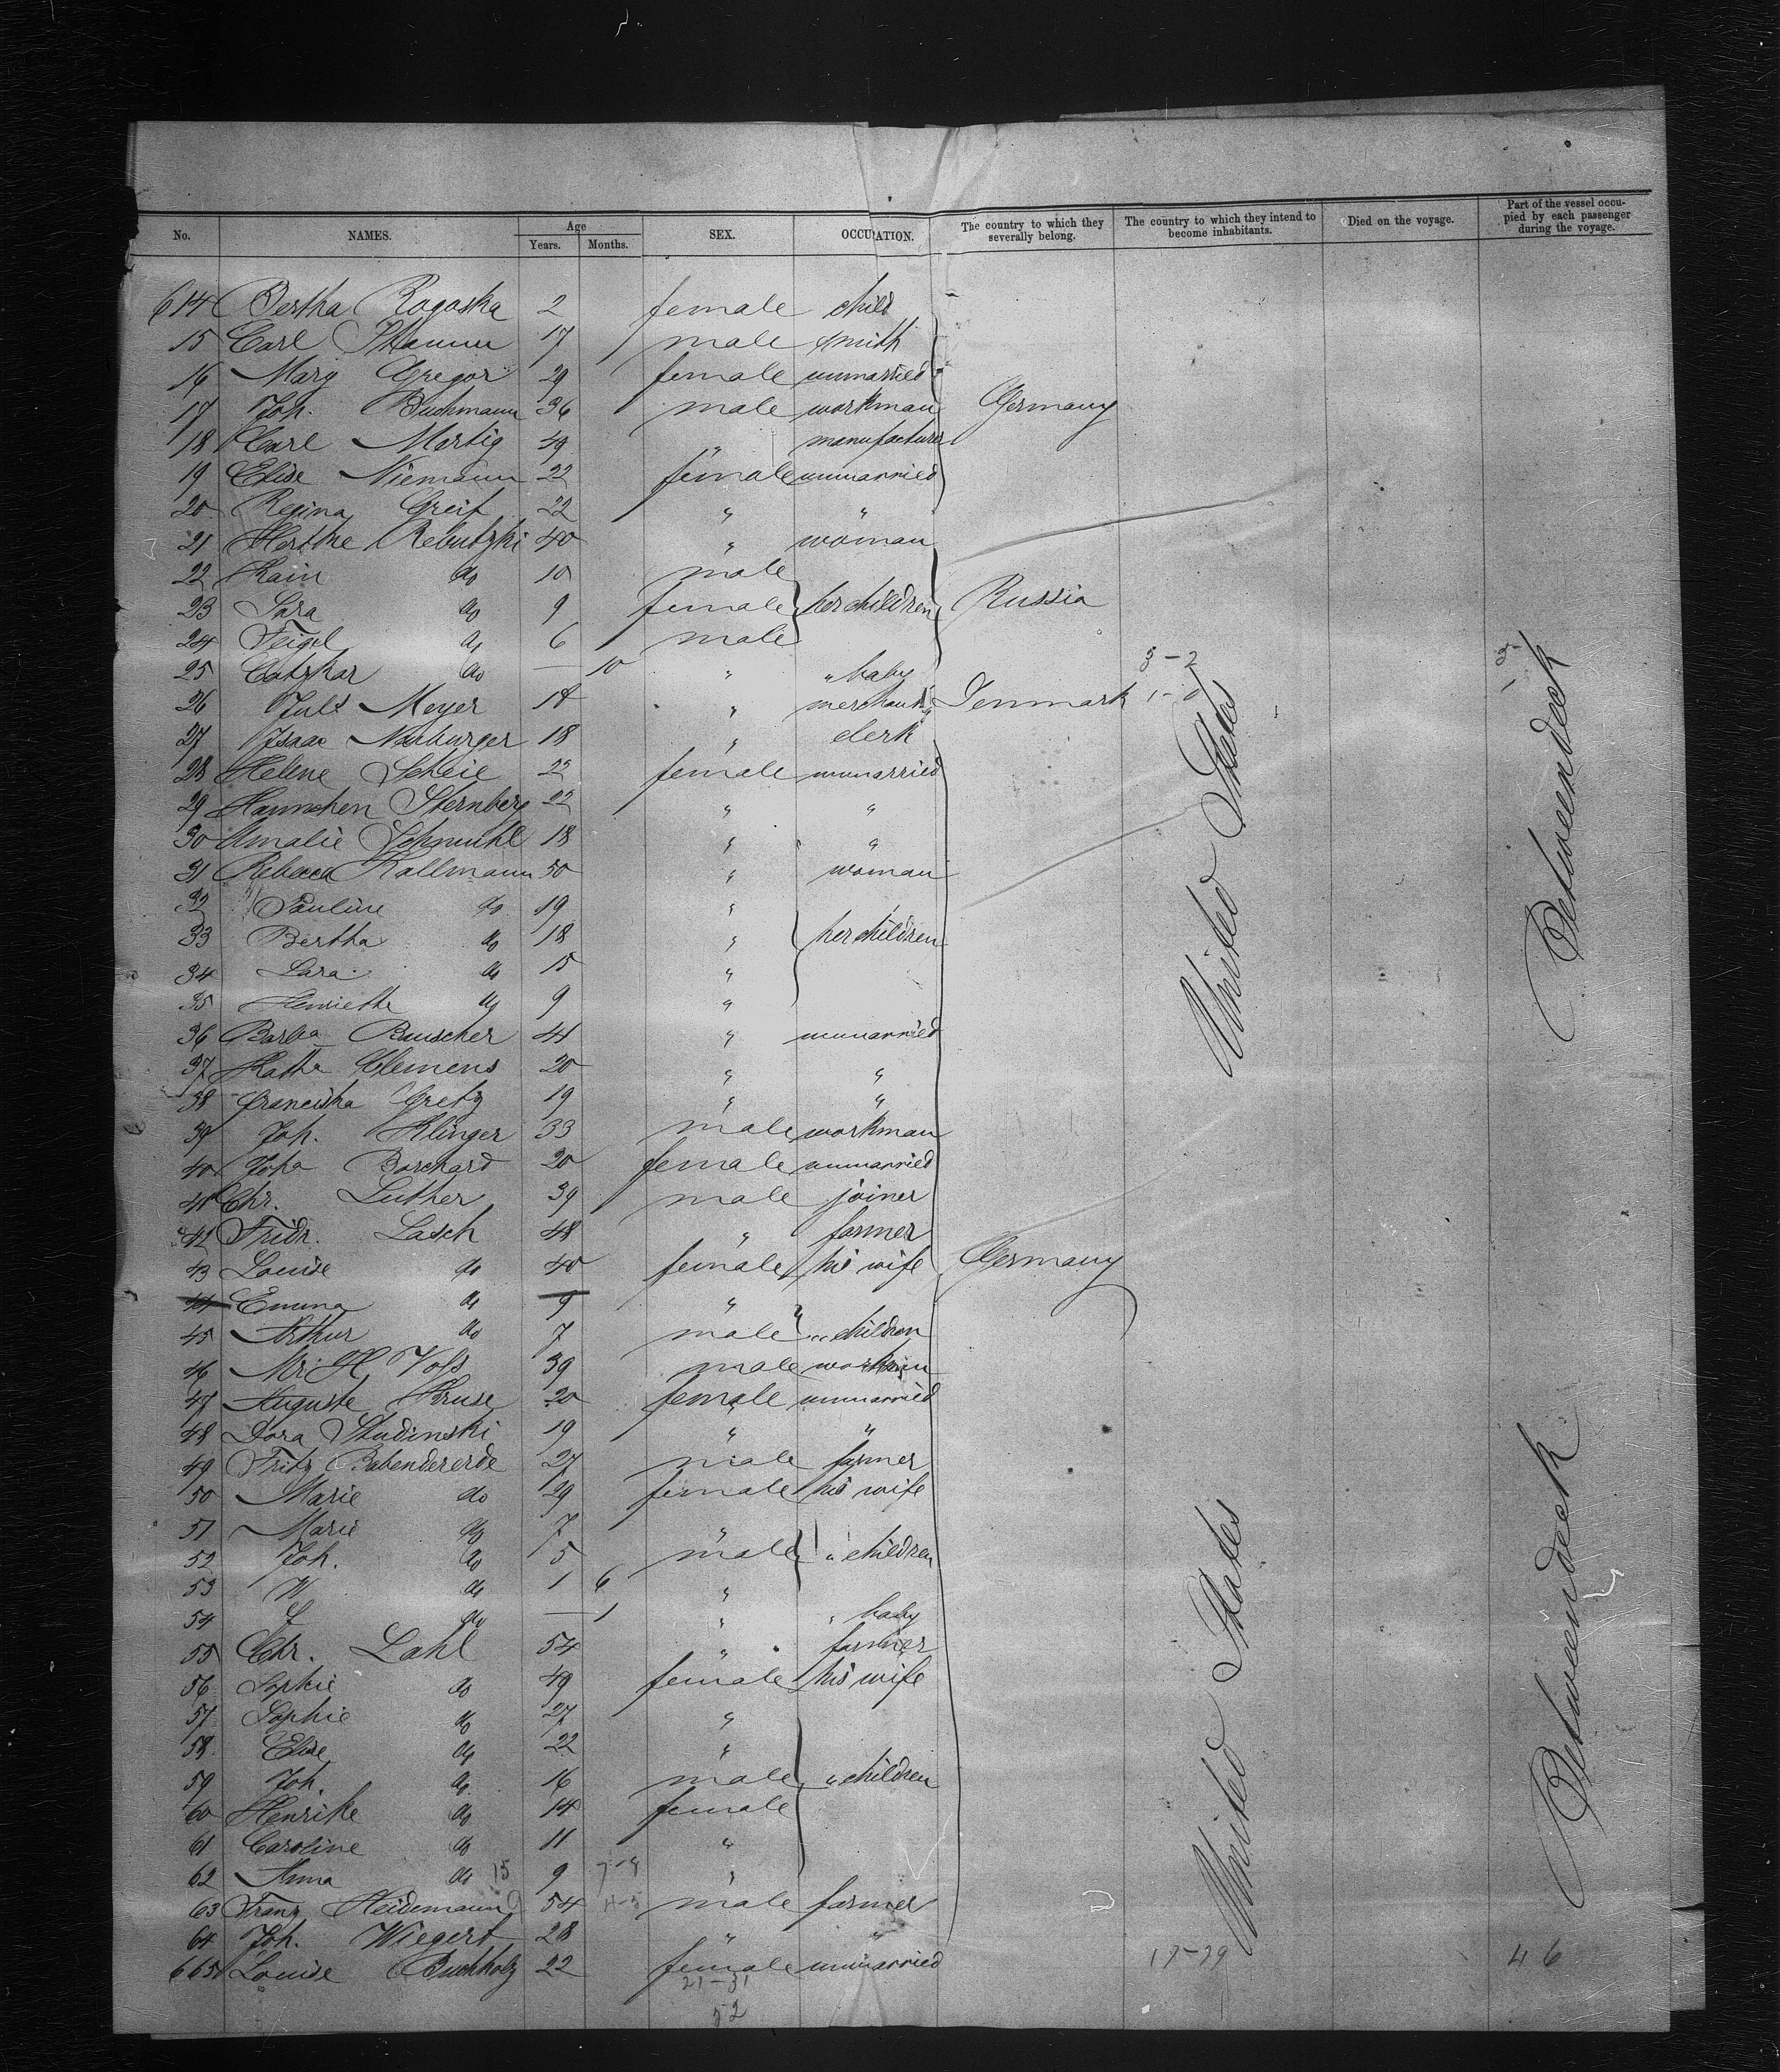 No. NAMES. Age Years. Months. SEX. OCCUPATION. The country to which they severally belong. The country to which they intend to become inhabitants. Died on the voyage. Part of the vessel occupied by each passenger during the voyage.
614 Bertha Rogoska 2 female child
15 Carl 17 male smith
16 Mary Gregor 29 female unmarried
17 Joh. Buchmann 36 male workman Germany
18 Carl Mertig 49 " manufacturer
19 Elise Niemann 22 female unmarried
20 Regina Greif 22 " "
21 Herthe Rebutzki 40 " woman
22 Kain do 10 male
23 Sara do 9 female her children Russia
24 Feigel do 6 male
25 do — 10 " " baby 3-2
26 Juls Meyer 18 " merchant Denmark 1-0
27 Isaac Neuburger 18 " clerk
28 Helene Scheie 22 female unmarried
29 Hannchen Sternberg 22 " "
30 Amalie 18 " "
31 Rebecca Kallmann 50 " woman
32 Pauline do 19 "
33 Bertha do 18 " her children
34 Sara do 15 "
35 Henriette do 9 "
36 Barba Bauscher 41 " unmarried
37 Katha Clemens 20 " "
38 Franciska Gretz 19 " "
39 Joh. Klinger 33 male workman
40 Joha Borchard 20 female unmarried
41 Chr. Luther 39 male joiner
42 Fridr. Lasch 48 " farmer
43 Louise do 40 female his wife Germany
44 Emma do 9 "
45 Arthur do 7 male " children
46 39 male workman
47 Auguste Kruse 20 female unmarried
48 Dora Studinski 19 " "
49 Fritz Babendererde 27 male farmer
50 Marie do 29 female his wife
51 Marie do 7 "
52 Joh. do 5 male " children
53 W do 1 6 "
54 do — 1 " " baby
55 Chr. Lahl 54 " farmer
56 Sophie do 49 female his wife
57 Sophie do 27 "
58 Elise do 22 "
59 Joh. do 16 male " children
60 Henrike do 14 female
61 Caroline do 11 "
62 Anna do 15 9 "
63 Franz Heidemann 54 male farmer
64 Joh. Wiegert 28 " "
665 Louise Buchholz 22 female unmarried 17-29 46
21-31
52
United States
United States
Betweendeck
Betweendeck